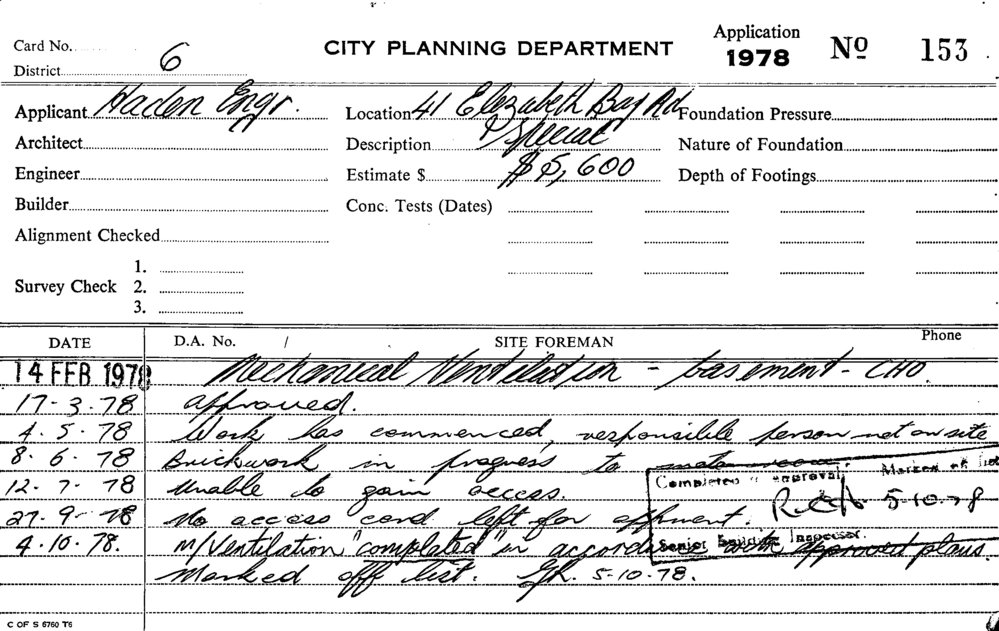 Card No. CITY PLANNING DEPARTMENT Application 1978 Nº 153
District 6
Applicant Haden Engr. Location 41 Elizabeth Bay Rd Foundation Pressure
Architect Description Special Nature of Foundation
Engineer Estimate $ $5,600 Depth of Footings
Builder Conc. Tests (Dates)
Alignment Checked
1.
Survey Check 2.
3.
DATE D.A. No. / SITE FOREMAN Phone
14 FEB 1978 Mechanical Ventilation - basement - CHO.
17-3-78 approved.
4.5.78 Work has commenced, responsible person not on site
8.6.78 Brickwork in progress to
12.7.78 Unable to gain access.
Completed approval. Marked off list
27.9.78 No access card left for 5-10-78
4.10.78. M/Ventilation "completed" in accordance with approved plans.
Senior Building Inspector.
Marked off list. 5-10-78.
C OF S 6760 T6